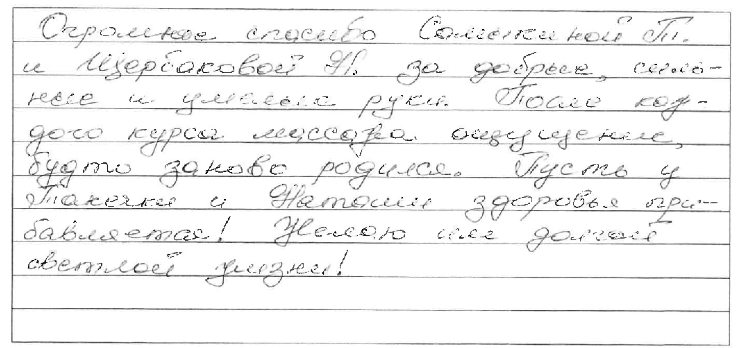 Огромное спасибо Самыкиной Т.
и Щербаковой Н. за добрые, силь-
ные и умелые руки. После каж-
дого курса массажа ощущение,
будто заново родился. Пусть у
Танечки и Наташи здоровья при-
бавляется! Желаю им долгой
светлой жизни!